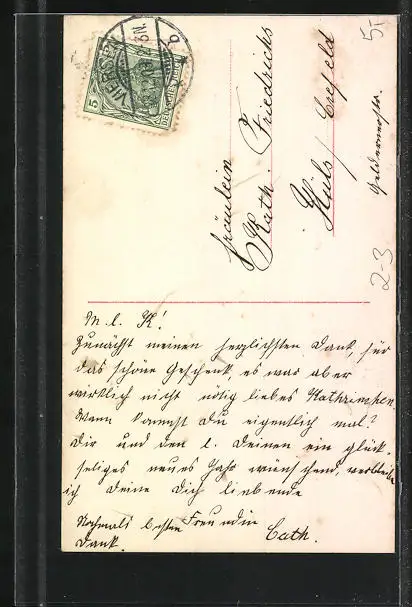 5,-
VIERSEN
3N.
5
DEUTSCHES REICH
Fräulein
Kath. Friedrichs
Hüls / Crefeld
2-3
M. l. K!
Zunächst meinen herzlichsten Dank, für
das schöne Geschenk, es war aber
wirklich nicht nötig liebes Kathrinchen.
Wann kommst Du eigentlich mal?
Dir und den l. Deinen ein glück-
seliges neues Jahr wünschend, verbleibe
ich Deine Dich liebende
Freundin
Cath.
Nochmals besten
Dank.